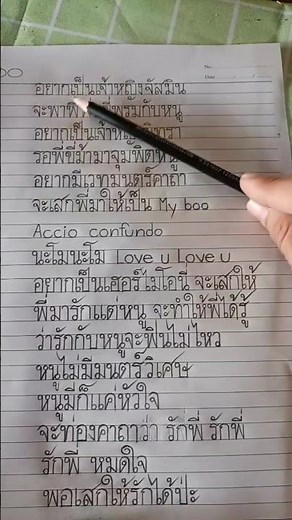 อยากเป็นเจ้าหญิงจัสมิน
จะพาพี่ พรมกับหนู
อยากเป็นเจ้าห นิทรา
รอพี่ขี่ม้ามาจุมพิตหนู
อยากมีเวทมนตร์คาถา
จะเสกพี่มาให้เป็น My boo
Accio confundo
นะโมนะโม Love u Love u
อยากเป็นเฮอร์ไมโอนี่ จะเสกให้
พี่มารักแต่หนู จะทำให้พี่ได้รู้
ว่ารักกับหนูจะฟินไม่ไหว
หนูไม่มีมนตร์วิเศษ
หนูมีก็แค่หัวใจ
จะท่องคาถาว่า รักพี่ รักพี่
รักพี่ หมดใจ
พอเสกให้รักได้ป่ะ